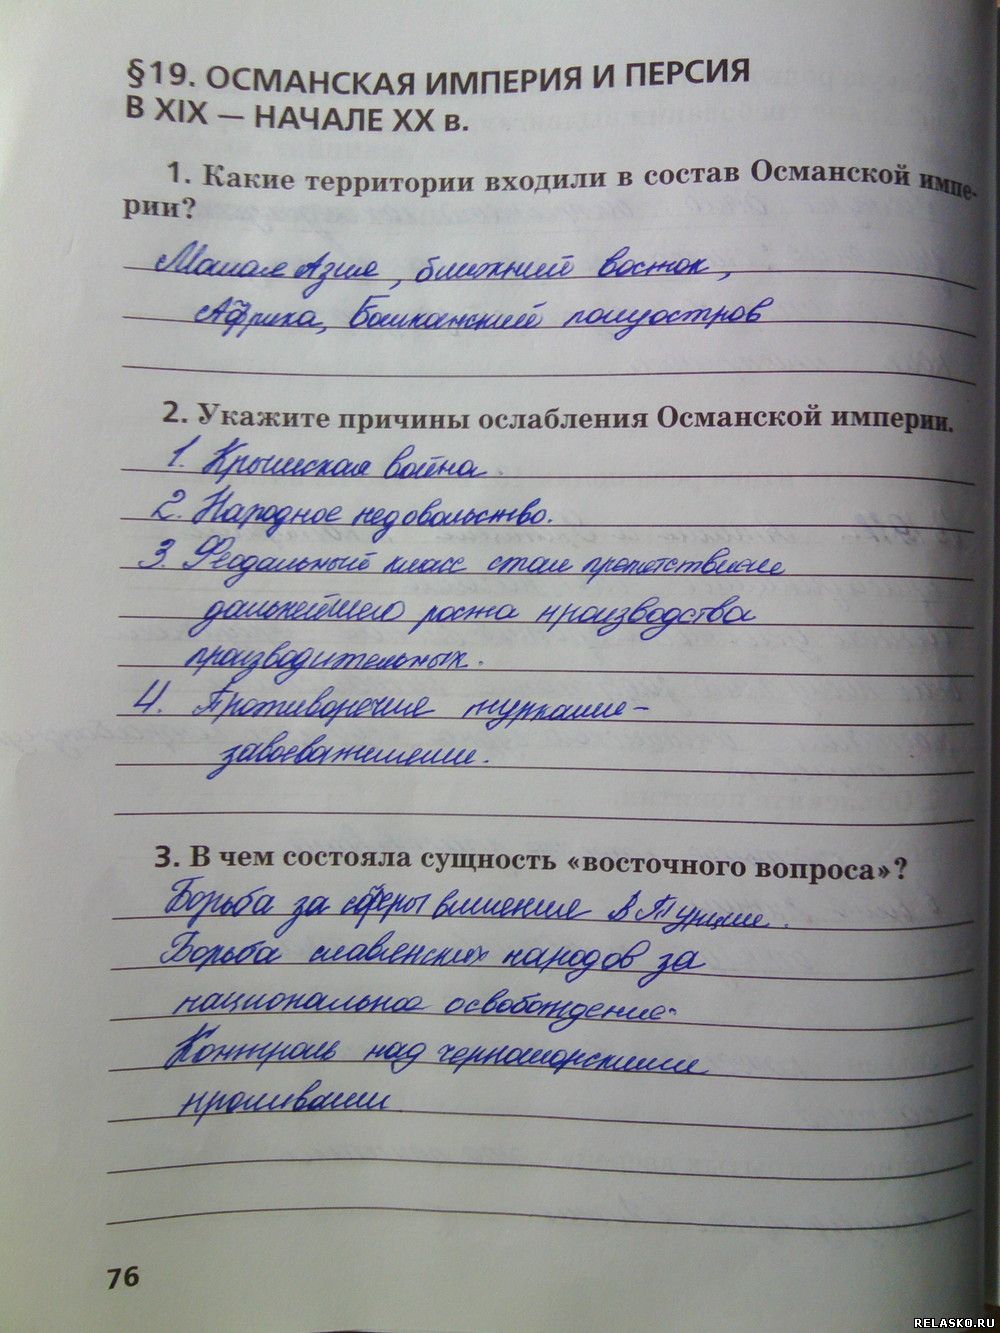 §19. ОСМАНСКАЯ ИМПЕРИЯ И ПЕРСИЯ
В XIX — НАЧАЛЕ XX в.
1. Какие территории входили в состав Османской импе-
рии?
Малая Азия, ближний восток,
Африка, Балканский полуостров
2. Укажите причины ослабления Османской империи.
1. Крымская война
2. Народное недовольство.
3. Феодальный класс стал препятствием
дальнейшего роста производства
производительных.
4. Противоречие турками-
завоевателями.
3. В чем состояла сущность «восточного вопроса»?
Борьба за сферы влияние в Турции.
Борьба славянских народов за
национальное освобождение.
Контроль над черноморскими
проливами
76
RELASKO.RU